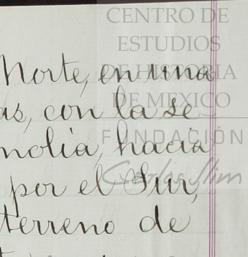 CENTRO DE
ESTUDIOS
DE HISTORIA
DE MEXICO
FUNDACIÓN
Carlos Slim
Norte, en una
as, con la se
nolia, hacia
por el Sur,
terreno de